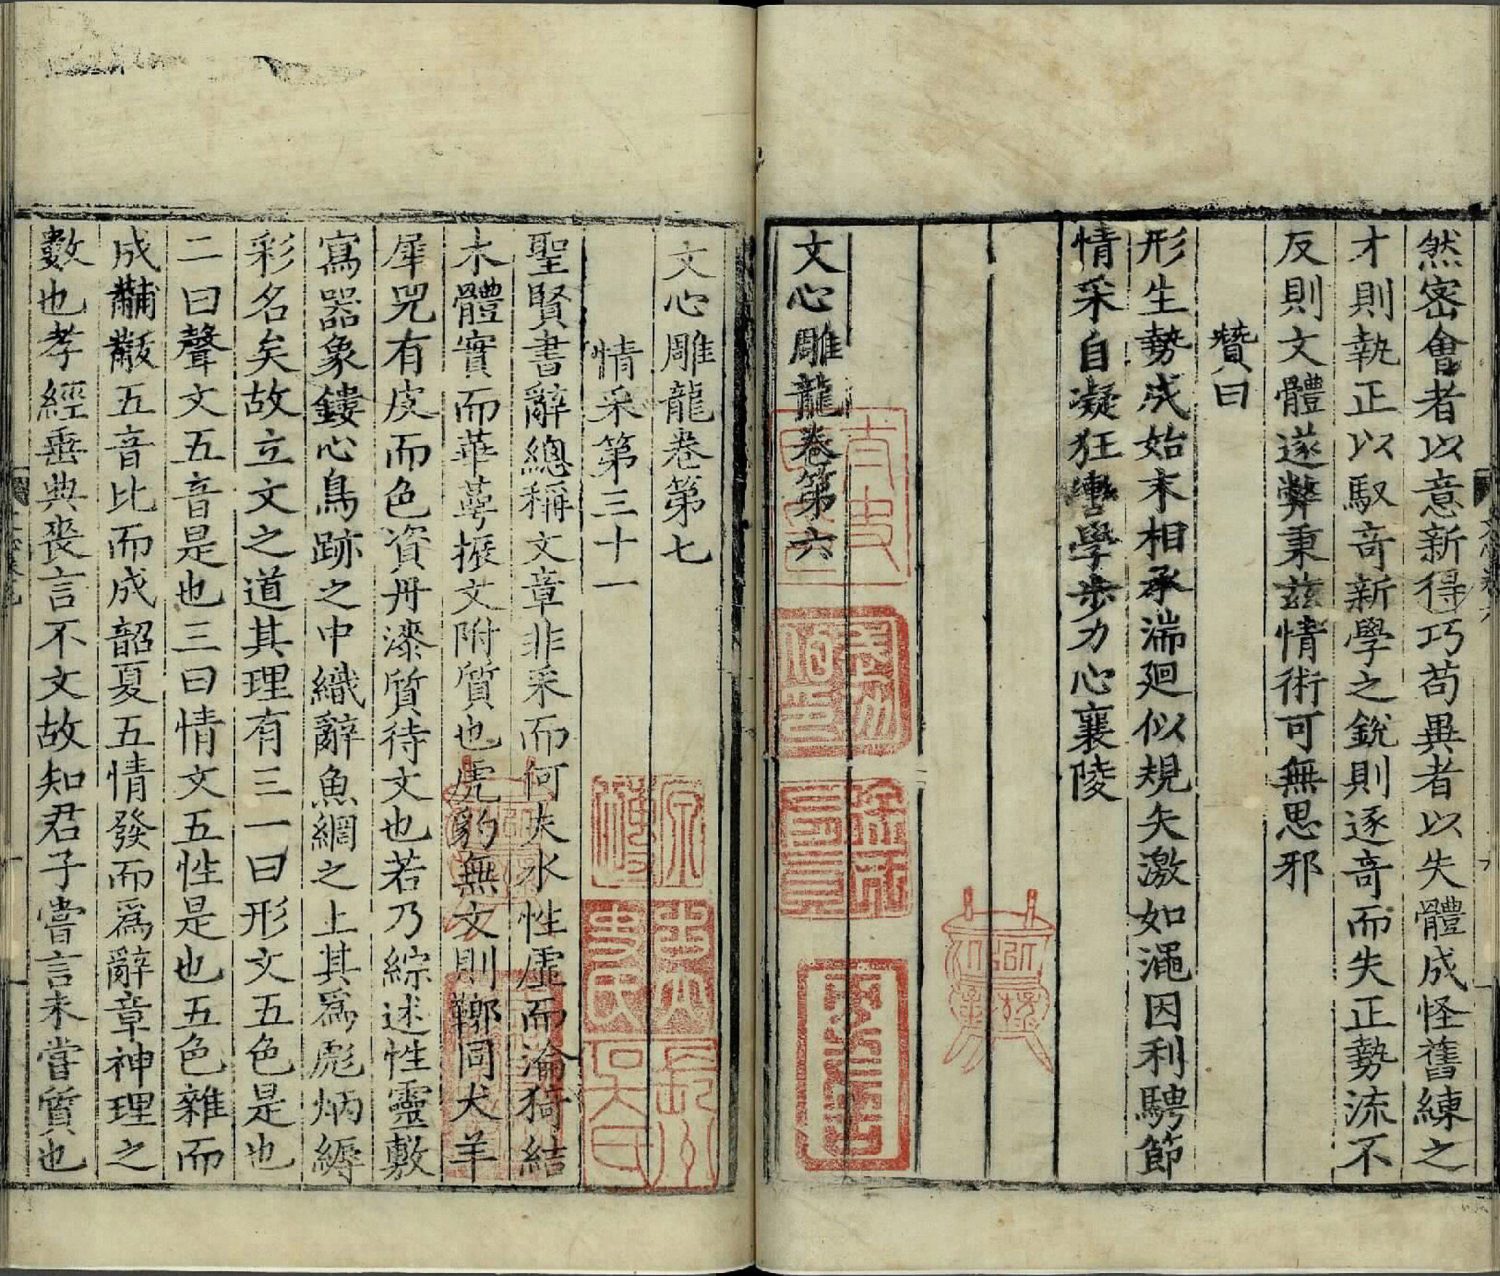 然密會者以意新得巧苟異者以失體成怪舊練之
才則執正以馭奇新學之銳則逐奇而失正勢流不
反則文體遂弊秉茲情術可無思邪
贊曰
形生勢成始末相承湍廻似規矢激如澠因利騁節
情采自凝狂轡學步力心襄陵
文心雕龍卷第六
文心雕龍卷第七
情采第三十一
聖賢書辭總稱文章非采而何夫水性虛而淪猗結
木體實而華蕚振文附質也虎豹無文則鞹同犬羊
犀兕有皮而色資丹漆質待文也若乃綜述性靈敷
寫器象鏤心鳥跡之中織辭魚網之上其爲彪炳縟
彩名矣故立文之道其理有三一曰形文五色是也
二曰聲文五音是也三曰情文五性是也五色雜而
成黼黻五音比而成韶夏五情發而爲辭章神理之
數也孝經垂典喪言不文故知君子嘗言未嘗質也